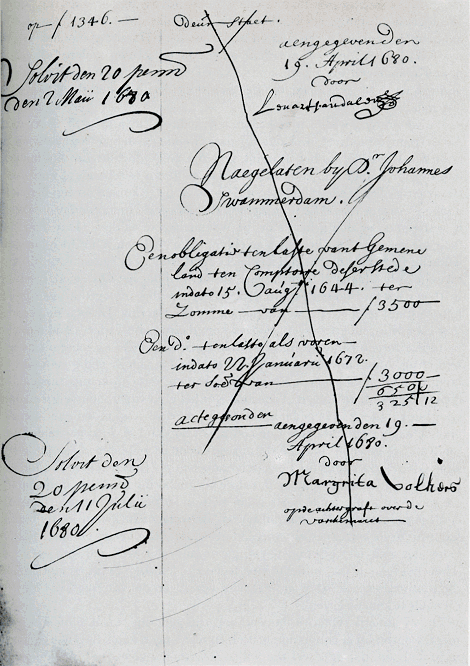 op f 1346. —
Deur Staet.
aengegeven den
19. April 1680.
door
Solvit den 20 penn
den 2 Maii 1680
Naegelaten by Dr. Johannes
Swammerdam.
Een obligatie ten laste vant Gemene
land ten Comptoire deser stede
in dato 15. Augt. 1644. ter
Somme van — f 3500
Een do. ten laste als voren
in dato 22 Januarii 1672.
ter Som van — f 3000
6500
325 12
acte gesonden
aengegeven den 19. —
April 1680.
door
Margrita Volkers
op de achtergraft over de
Solvit den
20 penn
den 11 Julii
1680.